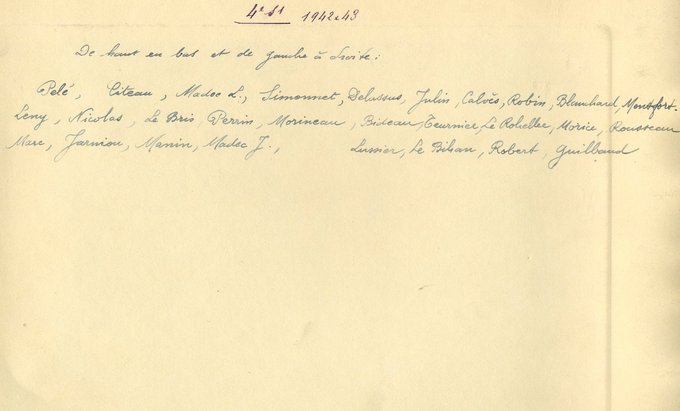 4e S1 1942-43
De haut en bas et de gauche à droite :
Pelé, Citeau, Madec L., Simonnet, Delassus, Julin, Calvès, Robin, Blanchard, Montfort.
Leny, Nicolas, Le Bris Perrin, Morineau, Bideau, Le Morice, Rousseau
Marc, Jarniou, Manin, Madec J., Lussier, Le Bihan, Robert, Guilbaud